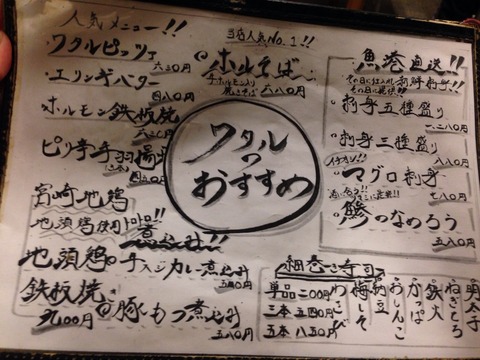 人気メニュー!!
・ワタルピッツァ
六三〇円
・エリンギバター
四八〇円
・ホルモン鉄板焼
・ピリ辛手羽揚
当店人気No.1!!
ホルそば
六八〇円
ワタル
の
おすすめ
魚港直送!!
・刺身五種盛り
一二八〇円
・刺身三種盛り
イチオシ!!
・マグロ刺身
七八〇円
・鯵のなめろう
五八〇円
宮崎地鶏
地頭鶏使用
地頭鶏の牛スジカレー煮込み
五八〇円
鉄板焼
九〇〇円
白豚もつ煮込み
五八〇円
細巻き寿司
単品二〇〇円
三本 五四〇円
五本 八五〇円
・明太子
・ねぎとろ
・鉄火
・かっぱ
・おしんこ
・納豆
・梅しそ
・わさび